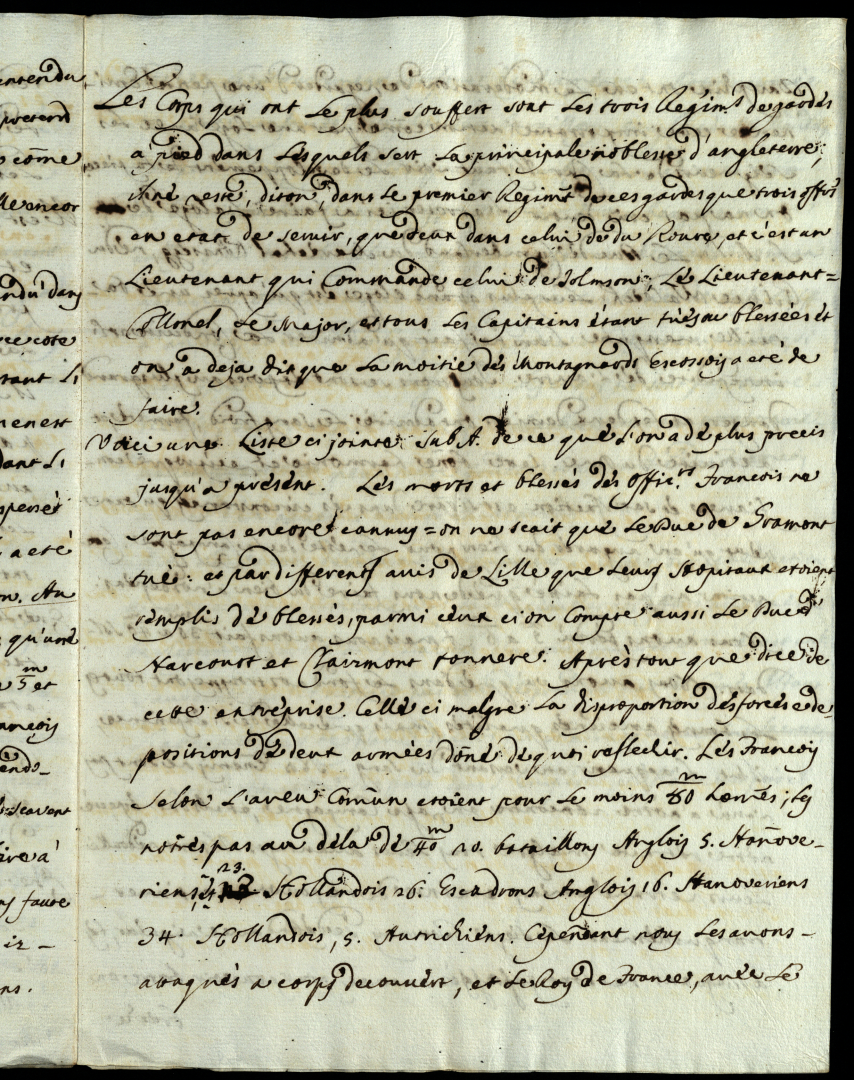 entendu
pretend
comẽ
encor
dans
cote
tant
menent
dant
a eté
on. Au
qu'une
m/5 et
ancois
scavent
ire a
ns.
Les Corps qui ont Le plus souffert sont Les trois Regim.ts de gardes
a pied dans Lesquels sert La principale noblesse d'angleterre;
il ne reste, diton, dans Le premier Regim.t de ces gardes que trois offrs
en etat de servir, que deux dans celui de du Roure, et c'est un
Lieutenant qui Commande celui de Jolmson; Le Lieutenant=
Collonel, Le Major, et tous Les Capitains étant tués ou blessées et
on a deja dit que La moitie des Montagnards Escossois a eté de
faire.
Voici une Liste ci jointe sub A. de ce que L'on a de plus precis
jusqu'a présent. Les morts et blessés des offic.rs Francois ne
sont pas encore connus = on ne scait que Le Duc de Gramont
tué: et par differents avis de Lille que Leurs Hopitaux etoient
remplis de blessés, parmi ceux ci on Compte aussi Le Duc d'
Harcourt et Clairmont tonnere. Aprés tout que dire de
cette entréprise. Celle ci malgre La disproportion des forces e de
positions de deux armées dõne de quoi reflechir. Les Francois
selon L'aveu Comũn etoient pour Le moins m/80 homẽs; Les
notres pas au dela de m/40 20. bataillons Anglois 5. Hañove-
riens, et 23. Hollandois 26. Escadrons Anglois 16. Hanoveriens
34. Hollandois, 5. Autrichiens. Cependant nous Les avons-
ataqués a corps decouvert, et Le Roy de France, avec Le